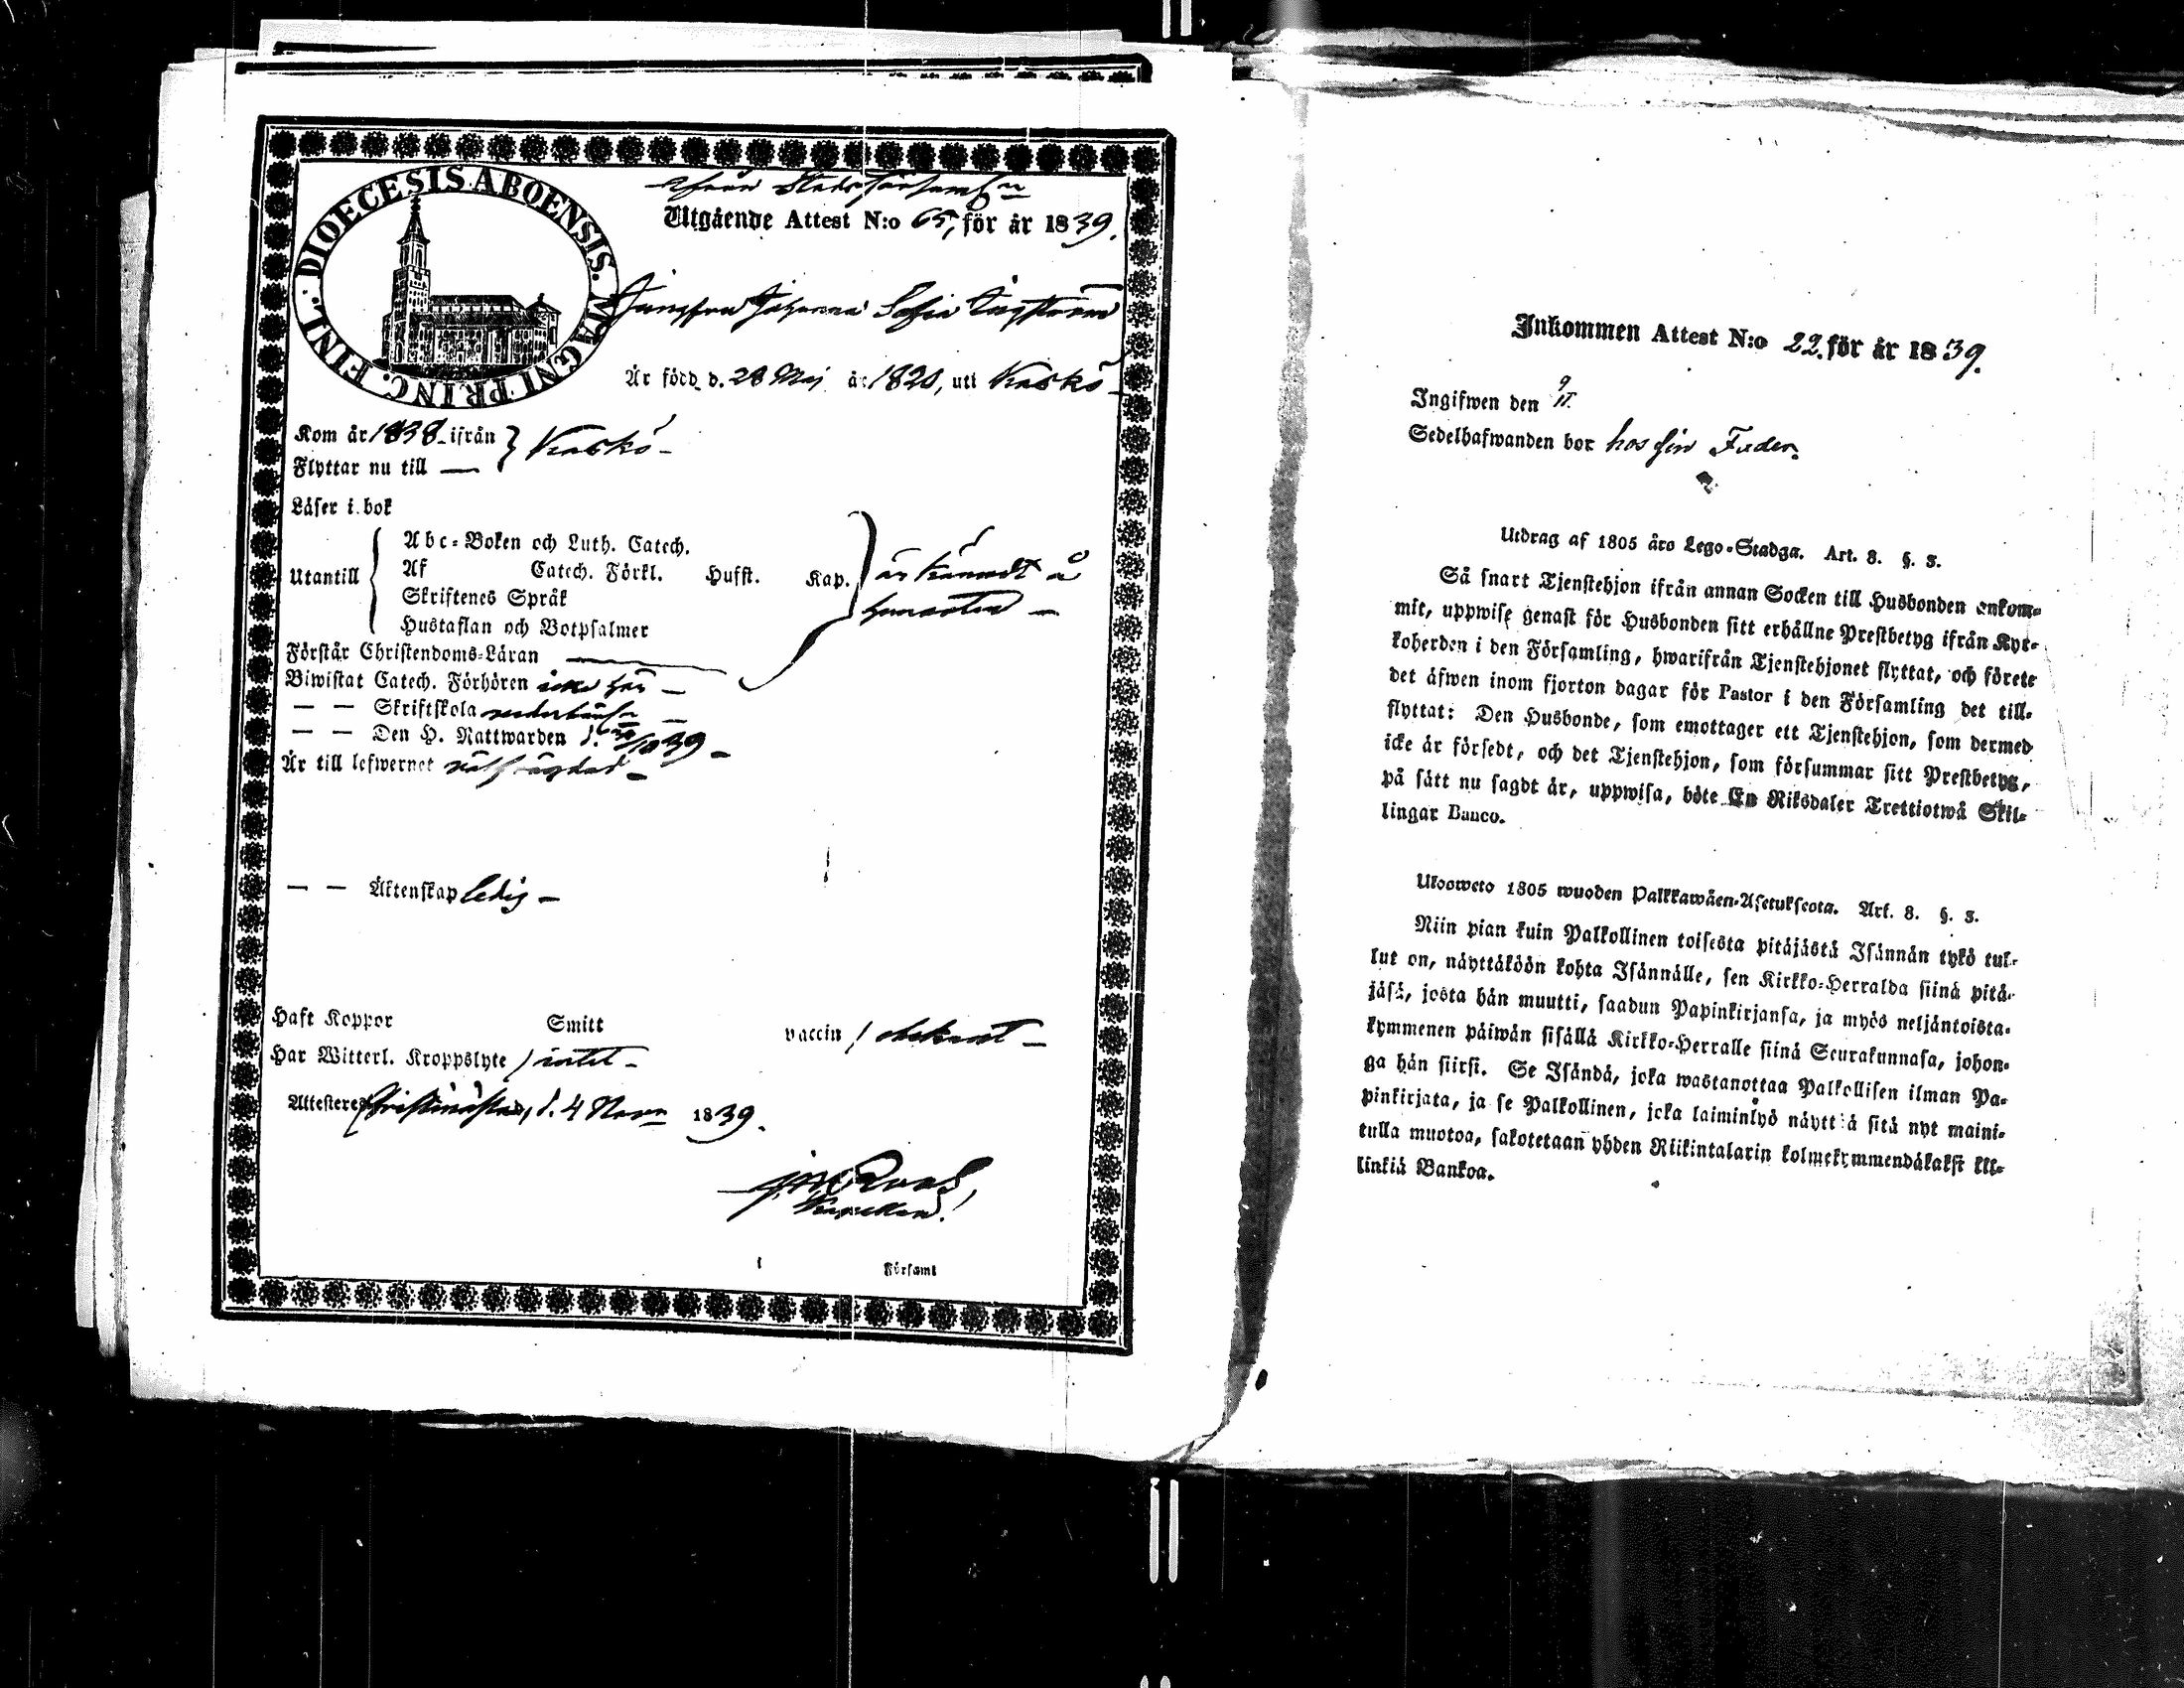 DIOECESIS ABOENSIS. MAGNI PRINC. FINL.
ifrån Stadsförsaml:n
Utgående Attest N:o 65, för år 1839.
Jungfru Johanna Sofia
Är född d. 28 Maj år 1820, uti Kaskö
Kom år 1838 ifrån } Kaskö
Flyttar nu till —
Läser i bok
Utantill
Abc-Boken och Luth. Catech.
Af Catech. Förkl. Hufst. Kap.
Skriftenes Språk
Hustaflan och Botpsalmer
är kändt å
hemorten —
Förstår Christendoms-Läran
Biwistat Catech. Förhören icke här —
— — Skriftskola —
— — Den H. Nattwarden d. 39 —
Är till lefwernet välfrägdad —
— — Äktenskap ledig —
Haft Koppor Smitt vaccin / obekant —
Har Witterl. Kroppslyte / intet —
Attesteres Christinestad, d. 4 Nov. 1839.
Roos
Kapellan.
Församl
Inkommen Attest N:o 22 för år 1839.
Ingifwen den 9/11.
Sedelhafwanden bor hos sin Fader.
Utdrag af 1805 års Lego-Stadga. Art. 8. §. 3.
Så snart Tjenstehjon ifrån annan Socken till Husbonden ankom-
mit, uppwise genast för Husbonden sitt erhållne Prestbetyg ifrån Kyr-
koherden i den Församling, hwarifrån Tjenstehjonet flyttat, och förete
det äfwen inom fjorton dagar för Pastor i den Församling det till-
flyttat: Den Husbonde, som emottager ett Tjenstehjon, som dermed
icke är försedt, och det Tjenstehjon, som försummar sitt Prestbetyg,
på sätt nu sagdt är, uppwisa, böte En Riksdaler Trettiotwå Skil-
lingar Banco.
Ulosweto 1805 wuoden Palkkawäen-Asetuksesta. Art. 8. §. 3.
Niin pian kuin Palkollinen toisesta pitäjästä Isännän tykö tul-
lut on, näyttäköön kohta Isännälle, sen Kirkko-Herralda siinä pitä-
jäsä, josta hän muutti, saadun Papinkirjansa, ja myös neljäntoista-
kymmenen päiwän sisällä Kirkko-Herralle siinä Seurakunnasa, johon-
ga hän siirsi. Se Isändä, joka wastanottaa Palkollisen ilman Pa-
pinkirjata, ja se Palkollinen, joka laiminlyö näyttää sitä nyt maini-
tulla muotoa, sakotetaan yhden Riikintalarin kolmekymmendäkaksi kil-
linkiä Bankoa.